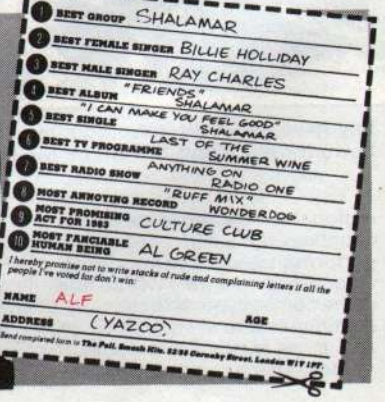 1 BEST GROUP SHALAMAR
2 BEST FEMALE SINGER BILLIE HOLLIDAY
3 BEST MALE SINGER RAY CHARLES
4 BEST ALBUM "FRIENDS"
SHALAMAR
5 BEST SINGLE "I CAN MAKE YOU FEEL GOOD"
SHALAMAR
6 BEST TV PROGRAMME LAST OF THE
SUMMER WINE
7 BEST RADIO SHOW ANYTHING ON
RADIO ONE
8 MOST ANNOYING RECORD "RUFF MIX"
WONDERDOG
9 MOST PROMISING
ACT FOR 1983 CULTURE CLUB
10 MOST FANCIABLE
HUMAN BEING AL GREEN
I hereby promise not to write stacks of rude and complaining letters if all the
people I've voted for don't win:
NAME ALF
ADDRESS (YAZOO) AGE
Send completed form to The Poll, Smash Hits, 52/55 Carnaby Street, London W1V 1PF.